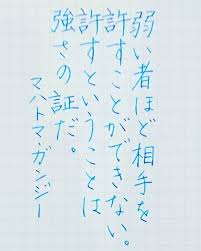 弱い者ほど相手を
許すことができない。
許すということは
強さの証だ。
マハトマ・ガンジー